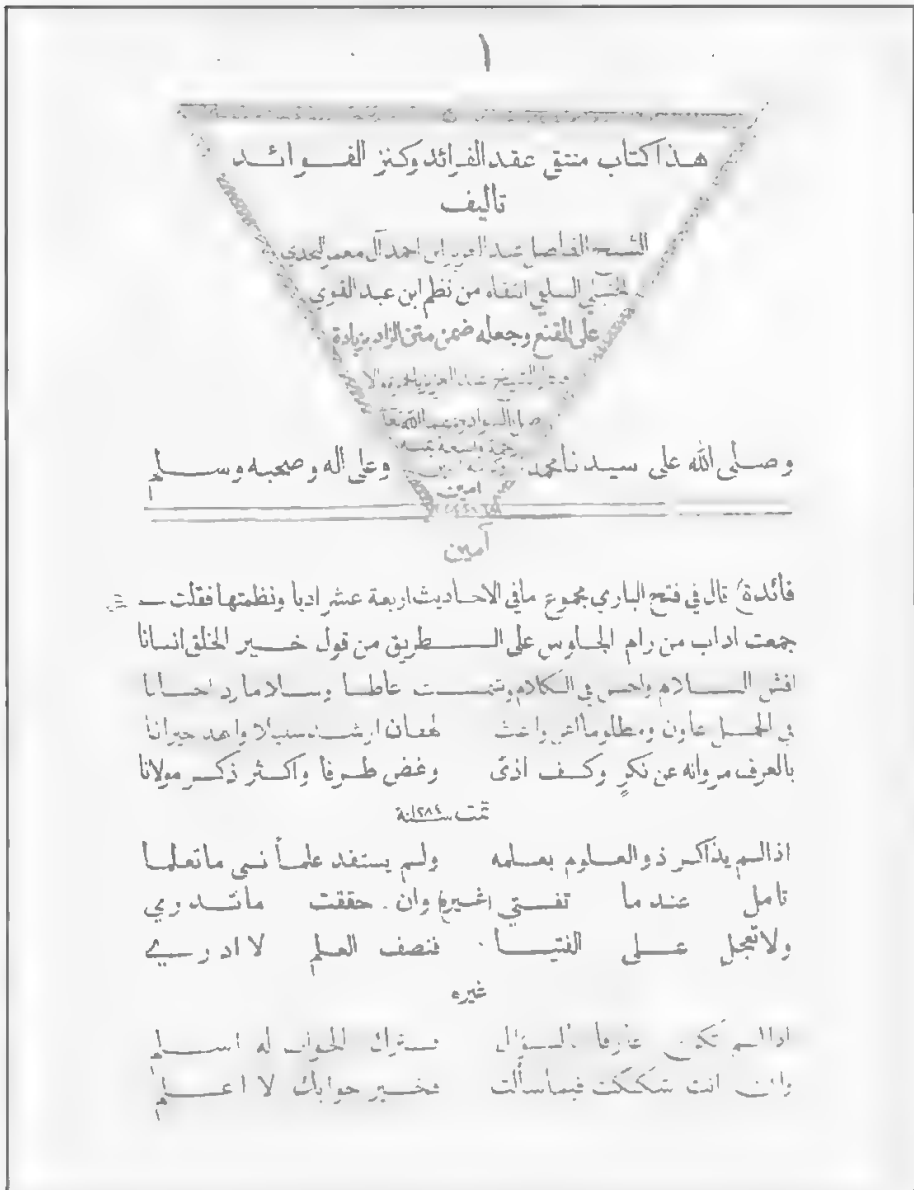 ١
هذا كتاب منتقى عقد الفرائد وكنز الفوائد
تاليف
الشيخ الفاضل عبد العزيز ابن احمد آل معمر النجدي
الحنبلي السلفي انتقاه من نظم ابن عبد القوي
على المقنع وجعله ضمن متن الزاد بزيادة
الشيخ عبد العزيز
رحمة واسعة
وصلى الله على سيدنا محمد وعلى اله وصحبه وسلم
امين
آمين
فائدة) قال في فتح الباري مجموع ما في الاحاديث اربعة عشر ادبا ونظمتها فقلت
جمعت اداب من رام الجلوس على الطريق من قول خير الخلق انسانا
افش السلام واحسن في الكلام وشمت عاطسا وسلاما رد احسانا
في الحمل عاون ومظلوما اعن واغث لهفان ارشد سبيلا واهد حيرانا
بالعرف مر وانه عن نكرٍ وكف اذى وغض طرفا واكثر ذكر مولانا
تمت سنة ١٢٨٤
اذا لم يذاكر ذو العلوم بعلمه ولم يستفد علماً نسي ما تعلما
تامل عندما تفتي (غيره) وان حققت ما تدري
ولا تعجل على الفتيا فنصف العلم لا ادري
غيره
اذا لم تكن عارفا بالسؤال فترك الجواب له اسلم
وان انت شككت فيما سألت فخير جوابك لا اعلم